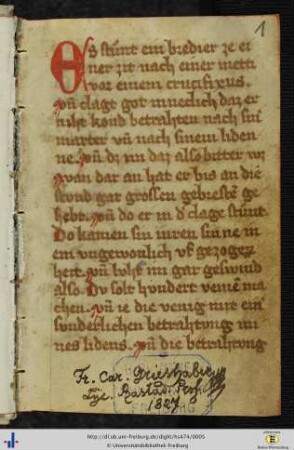 1
Es stůnt ein bredier ze ei
ner zit nach einer metti
vor einem crucifixus.
vn̄ clagt got inneclich daz er
niht kond betrahten nach sin͛
marter vn̄ nach sinem liden
ne. vn̄ dz im daz also bitter wz
wan dar an hat er bis an die
stund gar grossen gebresten ge
hebt. vn̄ do er in d͛ clage stůnt.
Do kamen sin inren sinne in
ein ungewonlich vf gezogen
heit. vn̄ luht im gar geswind
also. Dv solt hundert venie ma
chen. vn̄ ie die venig mit ein͛
sunderlichen betrahtvng mi
nes lidens. vn̄ die betrahtvng
Fr. Car. Grieshaber
Lyc. Rastad. Prof.
1827
http://dl.ub.uni-freiburg.de/diglit/hs474/0005
© Universitätsbibliothek Freiburg